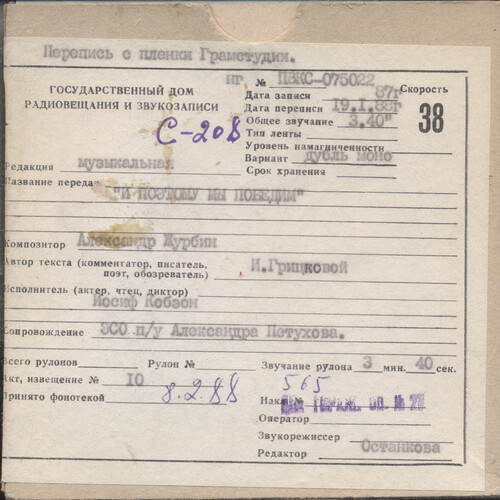 Перепись с пленки Грамстудии.
ГОСУДАРСТВЕННЫЙ ДОМ
РАДИОВЕЩАНИЯ И ЗВУКОЗАПИСИ
С-208
нг № ПВКС-075022
Дата записи 87г
Дата переписи 19.I.88г
Общее звучание 3.40"
Тип ленты
Уровень намагниченности
Вариант дубль моно
Срок хранения
Скорость
38
Редакция музыкальная
Название передачи "И ПОЭТОМУ МЫ ПОБЕДИМ"
Композитор Александр Журбин
Автор текста (комментатор, писатель,
поэт, обозреватель) И.Грицковой
Исполнитель (актер, чтец, диктор)
Иосиф Кобзон
Сопровождение ЭСО п/у Александра Петухова.
Всего рулонов Рулон № Звучание рулона 3 мин. 40 сек.
Акт, извещение № 10
Принято фонотекой 8.2.88
565
Накл. №
Оператор
Звукорежиссер
Редактор Останкова